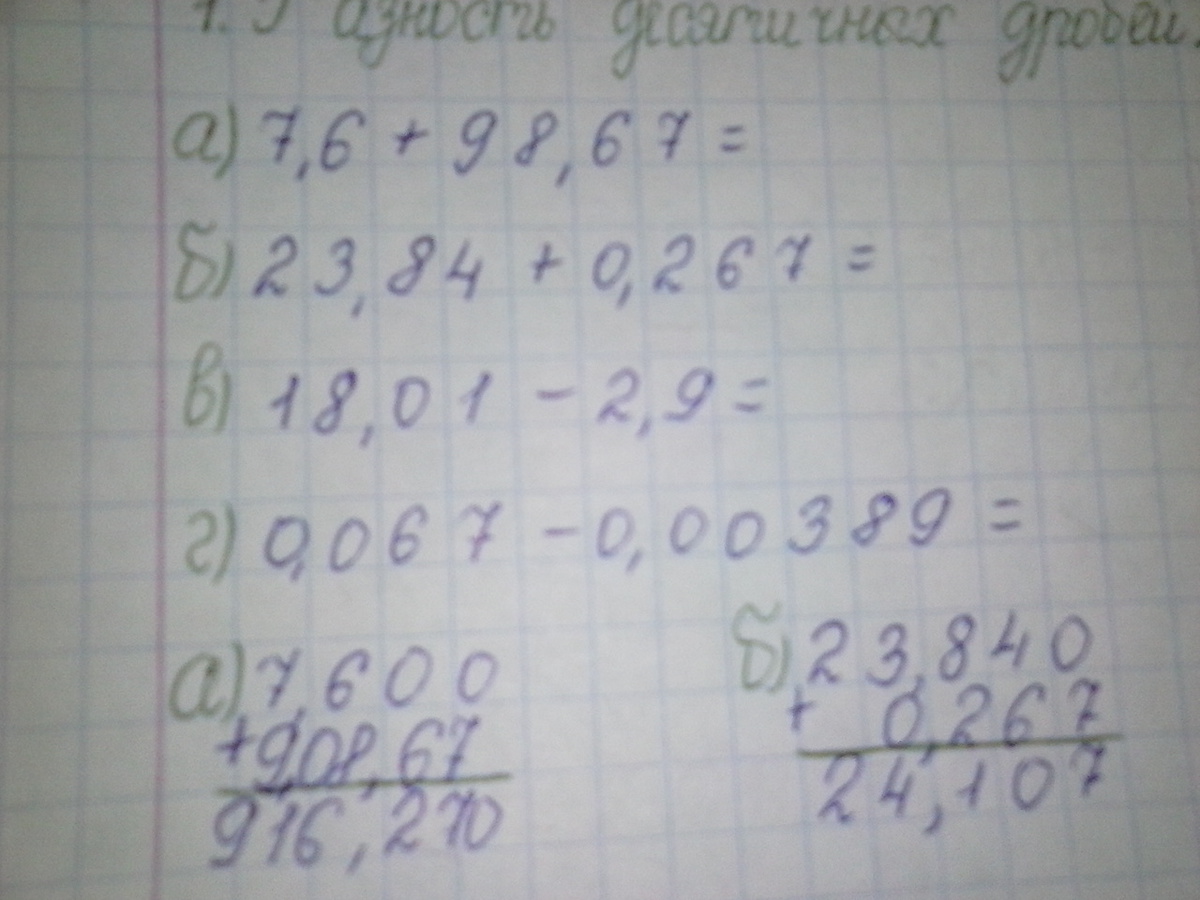 1. Разность десятичных дробей.
а) 7,6 + 98,67 =
б) 23,84 + 0,267 =
в) 18,01 - 2,9 =
г) 0,067 - 0,00389 =
а) 7,600
+ 908,67
916,270
б) 23,840
+ 0,267
24,107